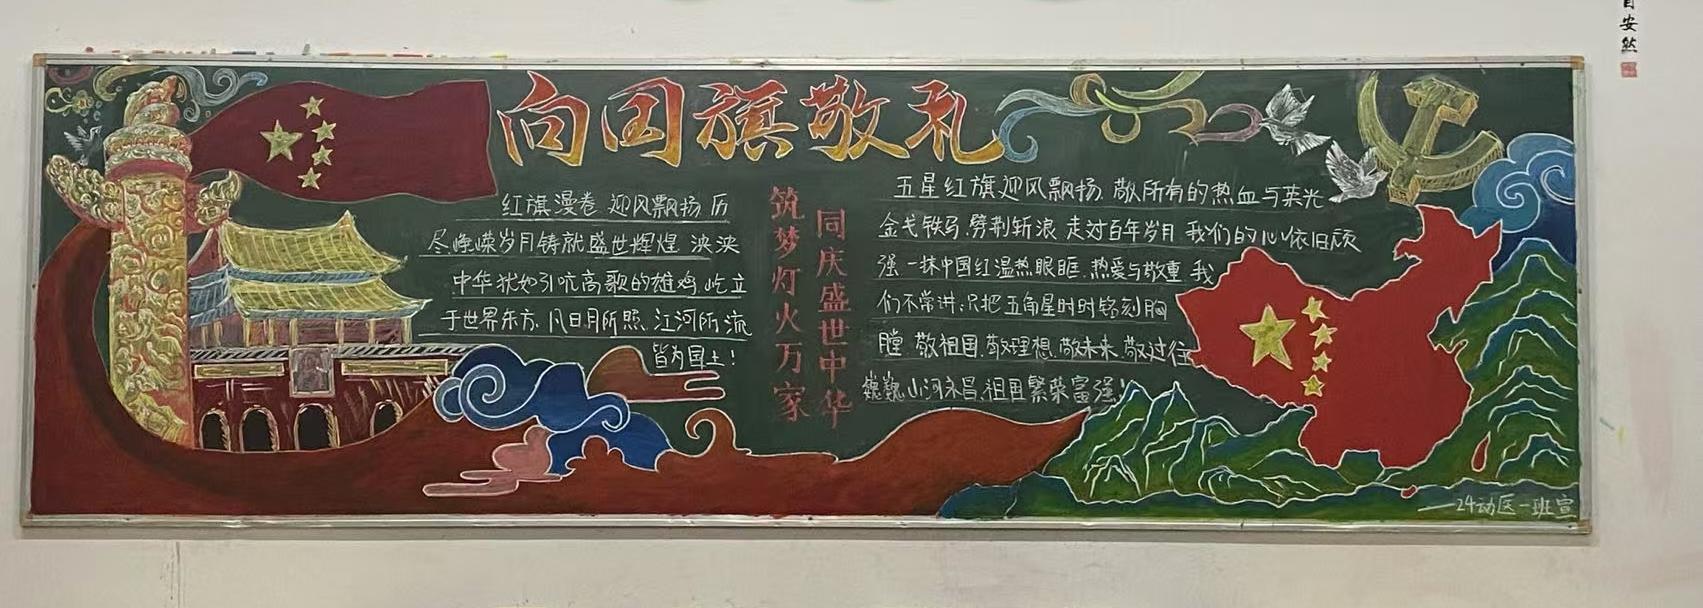 向国旗敬礼
红旗漫卷 迎风飘扬 历
尽峥嵘岁月铸就盛世辉煌 泱泱
中华犹如引吭高歌的雄鸡屹立
于世界东方.凡日月所照.江河所流
皆为国土!
筑梦灯火万家
同庆盛世中华
五星红旗迎风飘扬.敬所有的热血与荣光
金戈铁马.劈荆斩浪 走过百年岁月 我们的心依旧顽
强 一抹中国红温热眼眶.热爱与敬重 我
们不常讲:只把五角星时时铭刻胸
膛 敬祖国.敬理想.敬未来.敬过往
巍巍山河永昌.祖国繁荣富强!
——24动医一班宣
安然